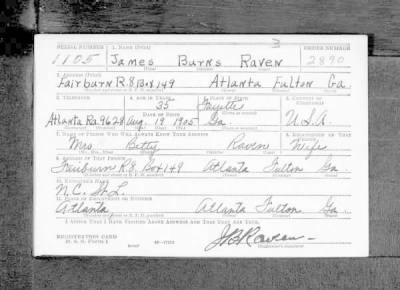 SERIAL NUMBER 1. NAME (Print) ORDER NUMBER
3
1105 James Burns Raven 2890
2. ADDRESS (Print)
Fairburn R.8 Box 149 Atlanta Fulton Ga.
3. TELEPHONE 4. AGE IN YEARS 5. PLACE OF BIRTH 6. COUNTRY OF CITIZENSHIP
35 Fayette
DATE OF BIRTH
Atlanta Ra. 9628 Aug. 19 1905 Ga. U.S.A.
7. NAME OF PERSON WHO WILL ALWAYS KNOW YOUR ADDRESS 8. RELATIONSHIP OF THAT PERSON
Mrs Betty Raven Wife
9. ADDRESS OF THAT PERSON
Fairburn R.8, Box 149 Atlanta Fulton Ga.
10. EMPLOYER'S NAME
N.C. St. L.
11. PLACE OF EMPLOYMENT OR BUSINESS
Atlanta Atlanta Fulton Ga.
I AFFIRM THAT I HAVE VERIFIED ABOVE ANSWERS AND THAT THEY ARE TRUE.
REGISTRATION CARD
D. S. S. Form 1
J B Raven